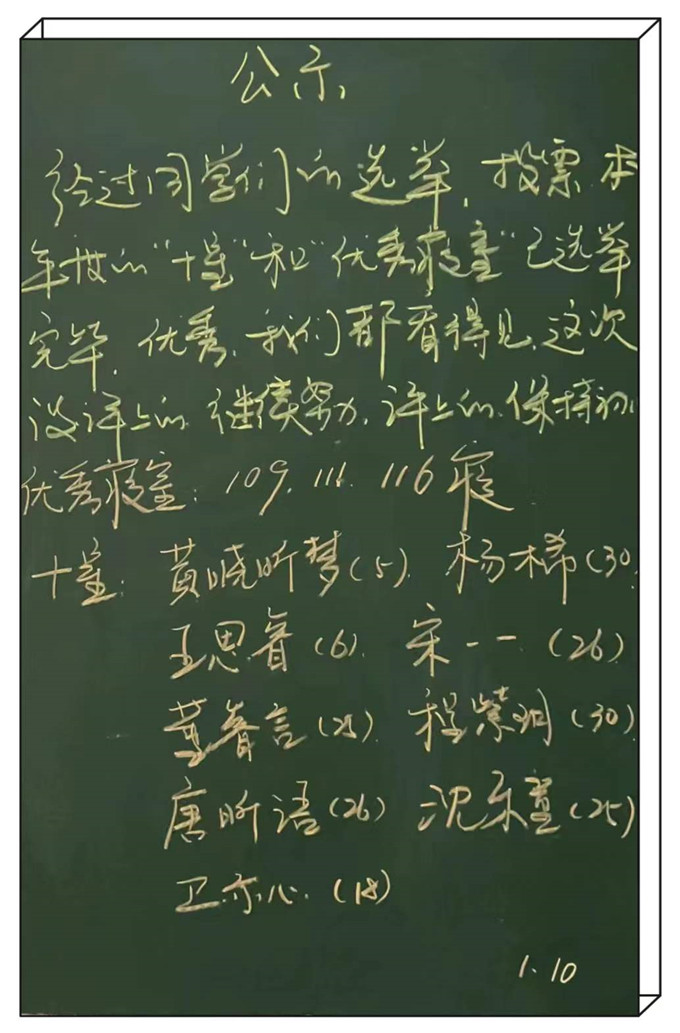 公示
经过同学们的选举，投票，本
年度的“十星”和“优秀寝室”已选举
完毕，优秀，我们都看得见，这次
没评上的，继续努力，评上的，保持初心
优秀寝室：109. 111. 116寝
十星：黄晓昕梦(5) 杨桸(30
王思睿(6) 宋一一(26)
董睿言(28) 程紫玥(30)
唐昕语(26) 沈乐萱(25)
卫亦心(18)
1.10